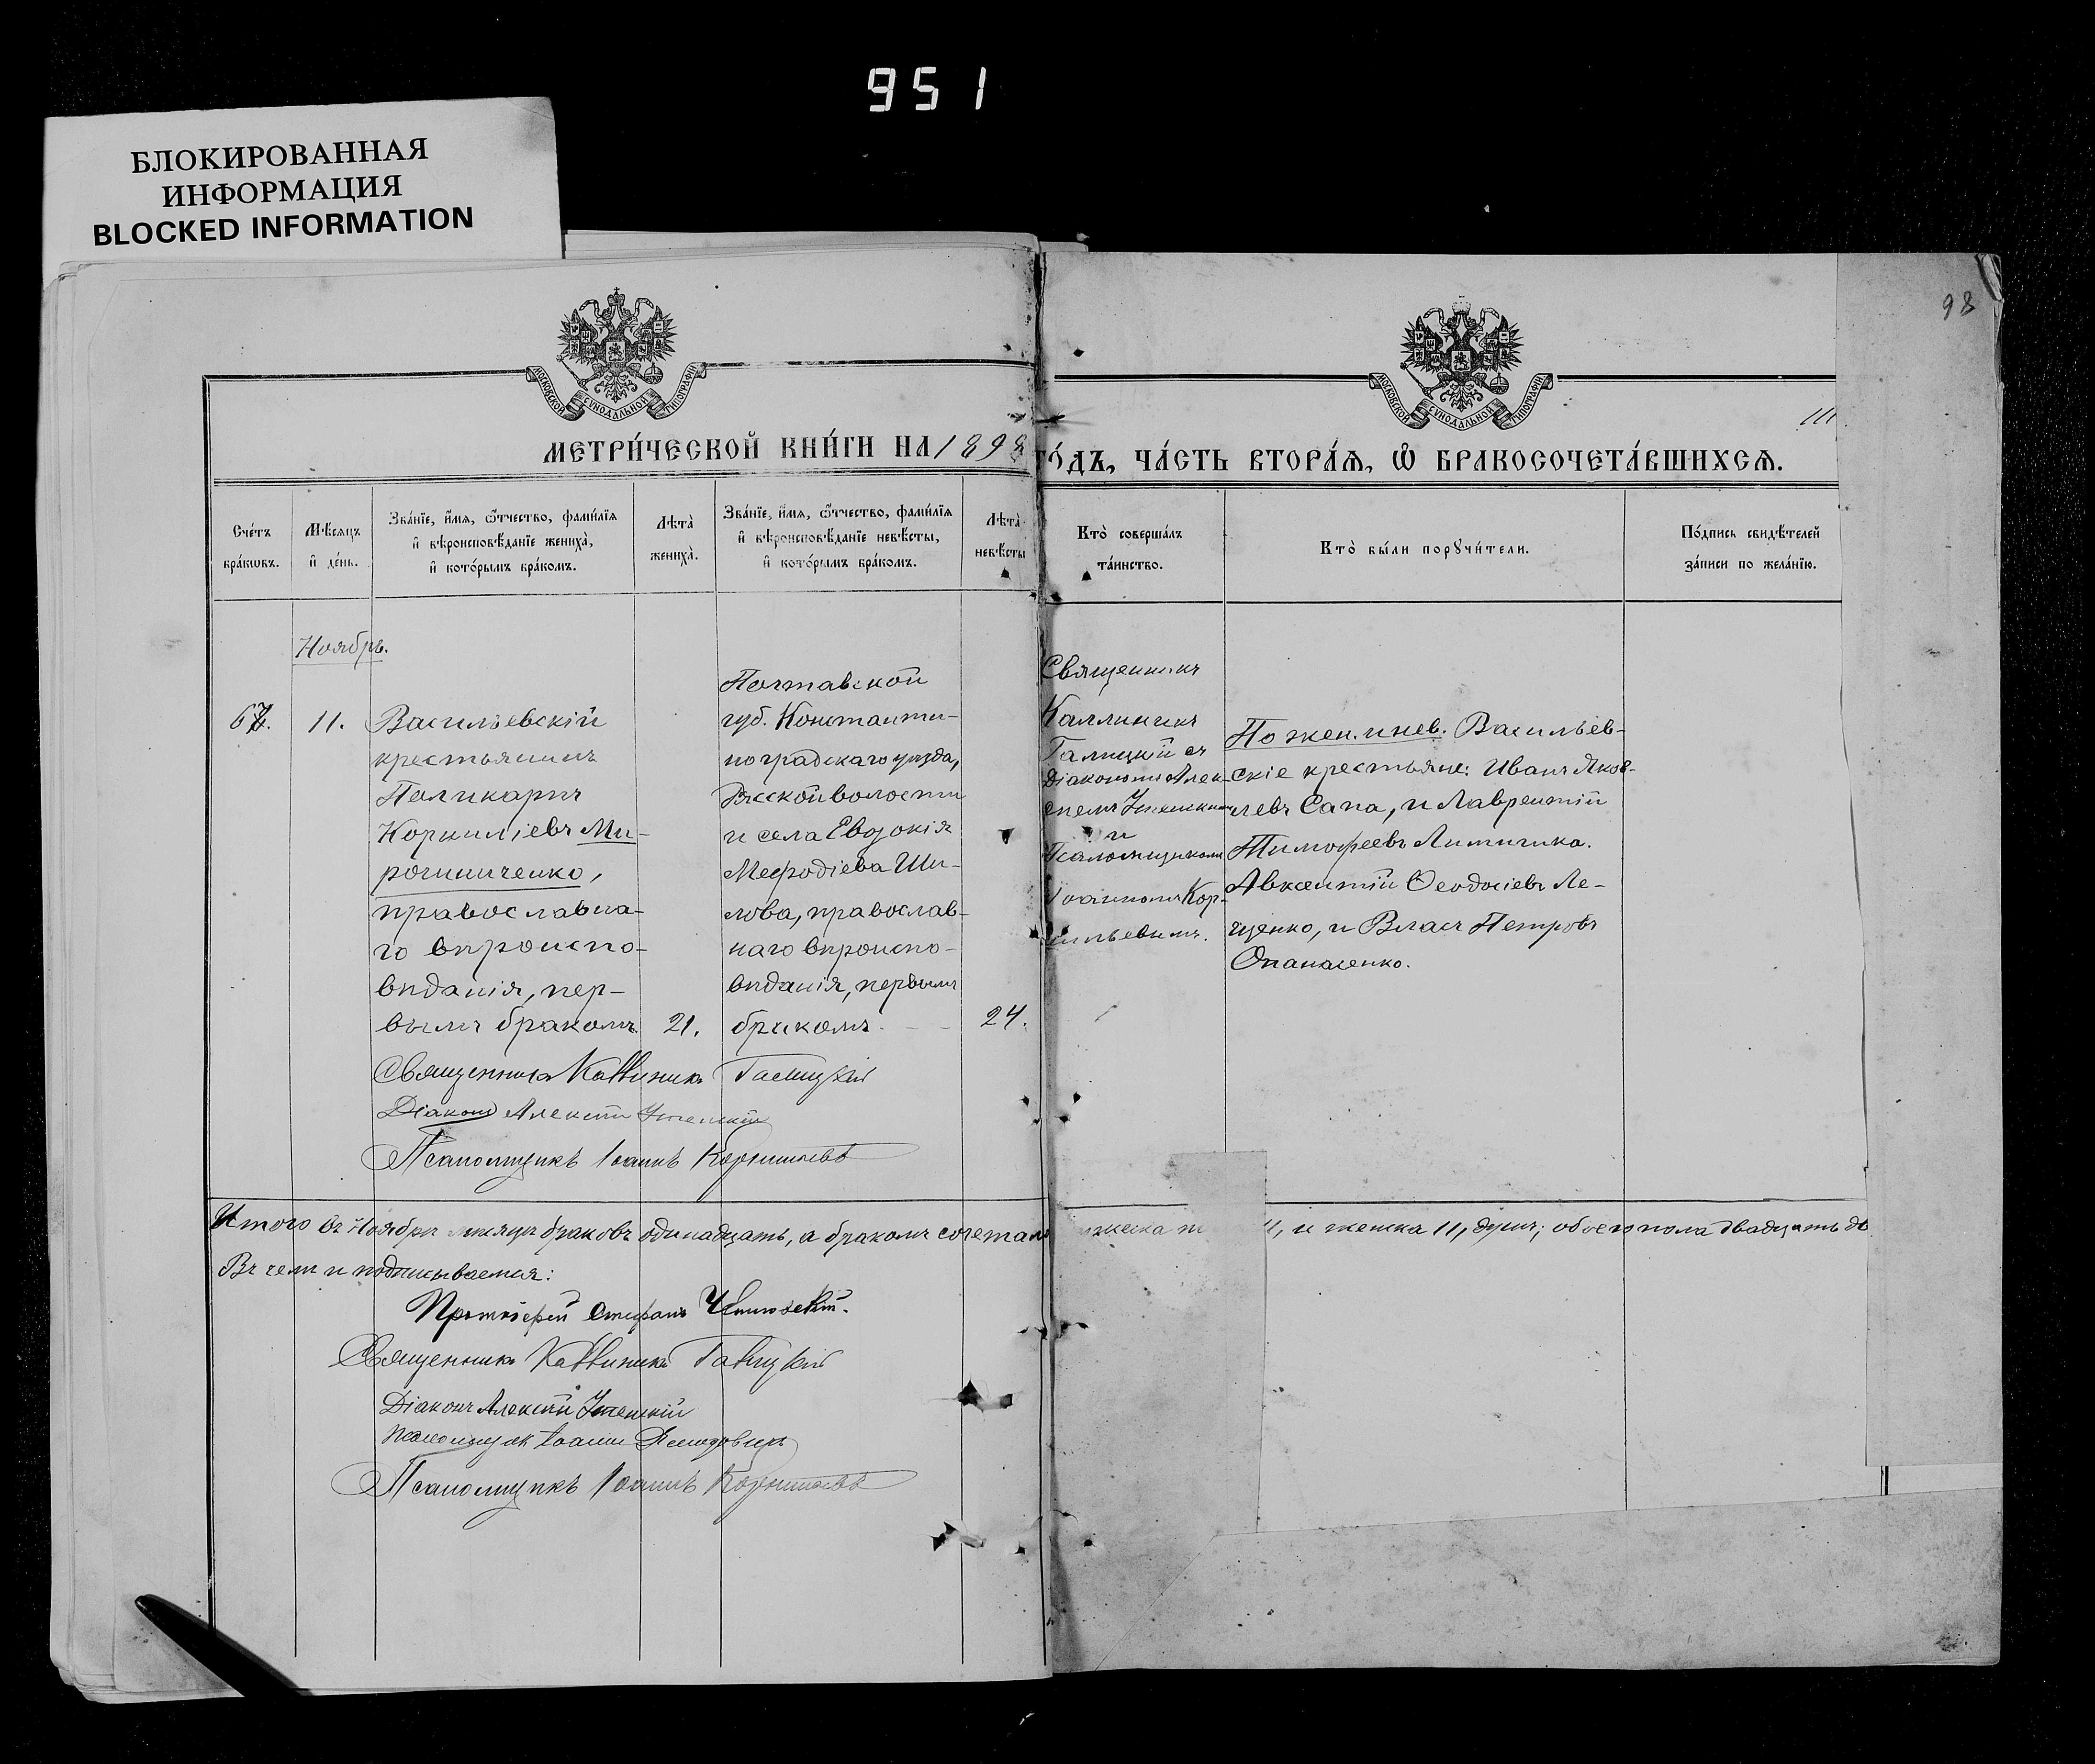 951
БЛОКИРОВАННАЯ
ИНФОРМАЦИЯ
BLOCKED INFORMATION
98
МОСКОВСКОЙ СѴНОДАЛЬНОЙ ТИПОГРАФІИ
МОСКОВСКОЙ СѴНОДАЛЬНОЙ ТИПОГРАФІИ
111
МЕТРИ́ЧЕСКОЙ КНИ́ГИ НА 1898
ГО́ДЪ, ЧА́СТЬ ВТОРА́Ѧ, Ѽ БРАКОСОЧЕТА́ВШИХСѦ.
Сче́тъ
бра́кѡвъ.
Мѣ́сяцъ
и҆ де́нь.
Зва́нїе, и҆́мя, ѻ҆́тчество, фами́лїя
и҆ вѣроисповѣ́данїе жениха̀,
и҆ кото́рымъ бра́комъ.
Лѣта̀
жениха̀.
Зва́нїе, и҆́мя, ѻ҆́тчество, фами́лїя
и҆ вѣроисповѣ́данїе невѣ́сты,
и҆ кото́рымъ бра́комъ.
Лѣта̀
невѣ́сты
Кто̀ соверша́лъ
та́инство.
Кто̀ бы́ли порꙋчи́тели.
По́дпись свидѣ́телей
за́писи по жела́нїю.
Ноябрь.
67.
11.
Васильевскій
крестьянинъ
Поликарпъ
Корниліевъ Ми-
рошниченко,
православна-
го вѣроиспо-
вѣданія, пер-
вымъ бракомъ.
21.
Полтавской
губ. Константи-
ноградскаго уѣзда,
Рясской волости
и села Евдокія
Мефодіева Ши-
лова, православ-
наго вѣроиспо-
вѣданія, первымъ
бракомъ.
24.
Священникъ
Каллиникъ
Галицкій съ
Діакономъ Алек-
и
Псаломщикомъ
Іоанномъ Кор-
нильевымъ.
По женихѣ. Васильев-
скіе крестьяне: Иванъ Яков-
левъ Сапа, и Лаврентій
Тимофеевъ Литичка.
Авксентій Ѳеодосіевъ Ле-
щенко, и Власъ Петровъ
Опанасенко.
Священникъ Каллиникъ Галицкій
Діаконъ Алексѣй
Псаломщикъ Іоаннъ Корнильевъ
Итого въ Ноябрѣ мѣсяцѣ браковъ одинадцать, а бракомъ сочетало
11, и женска 11, душъ; обоего пола двадцать дв
Въ чемъ и подписываемся:
Протоіерей Стефанъ
Священникъ Каллиникъ Галицкій
Діаконъ Алексѣй
Псаломщикъ Іоаннъ
Псаломщикъ Іоаннъ Корнильевъ